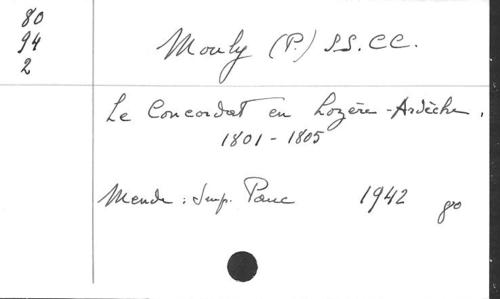 80
94
2
Mouly (P.) SS.CC.
Le Concordat en Lozère-Ardèche.
1801-1805
Mende : Imp. Pauc 1942 80